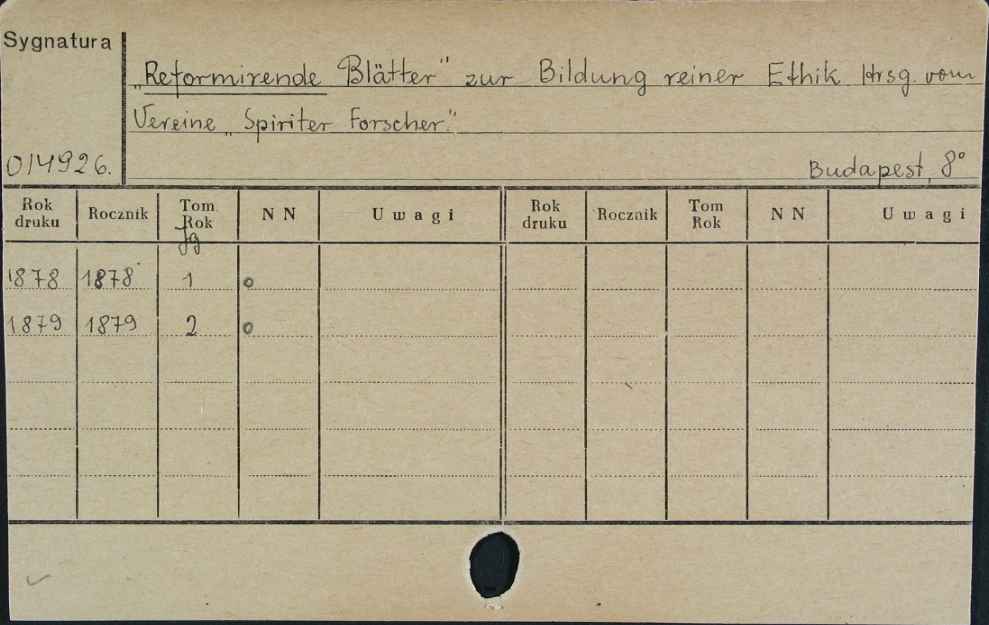 Sygnatura
„Reformirende Blätter" zur Bildung reiner Ethik. Hrsg. vom
Vereine „Spiriter Forscher."
014926.
Budapest, 8°
Rok druku Rocznik Tom Rok Jg N N Uwagi Rok druku Rocznik Tom Rok N N Uwagi
1878 1878 1 o
1879 1879 2 o